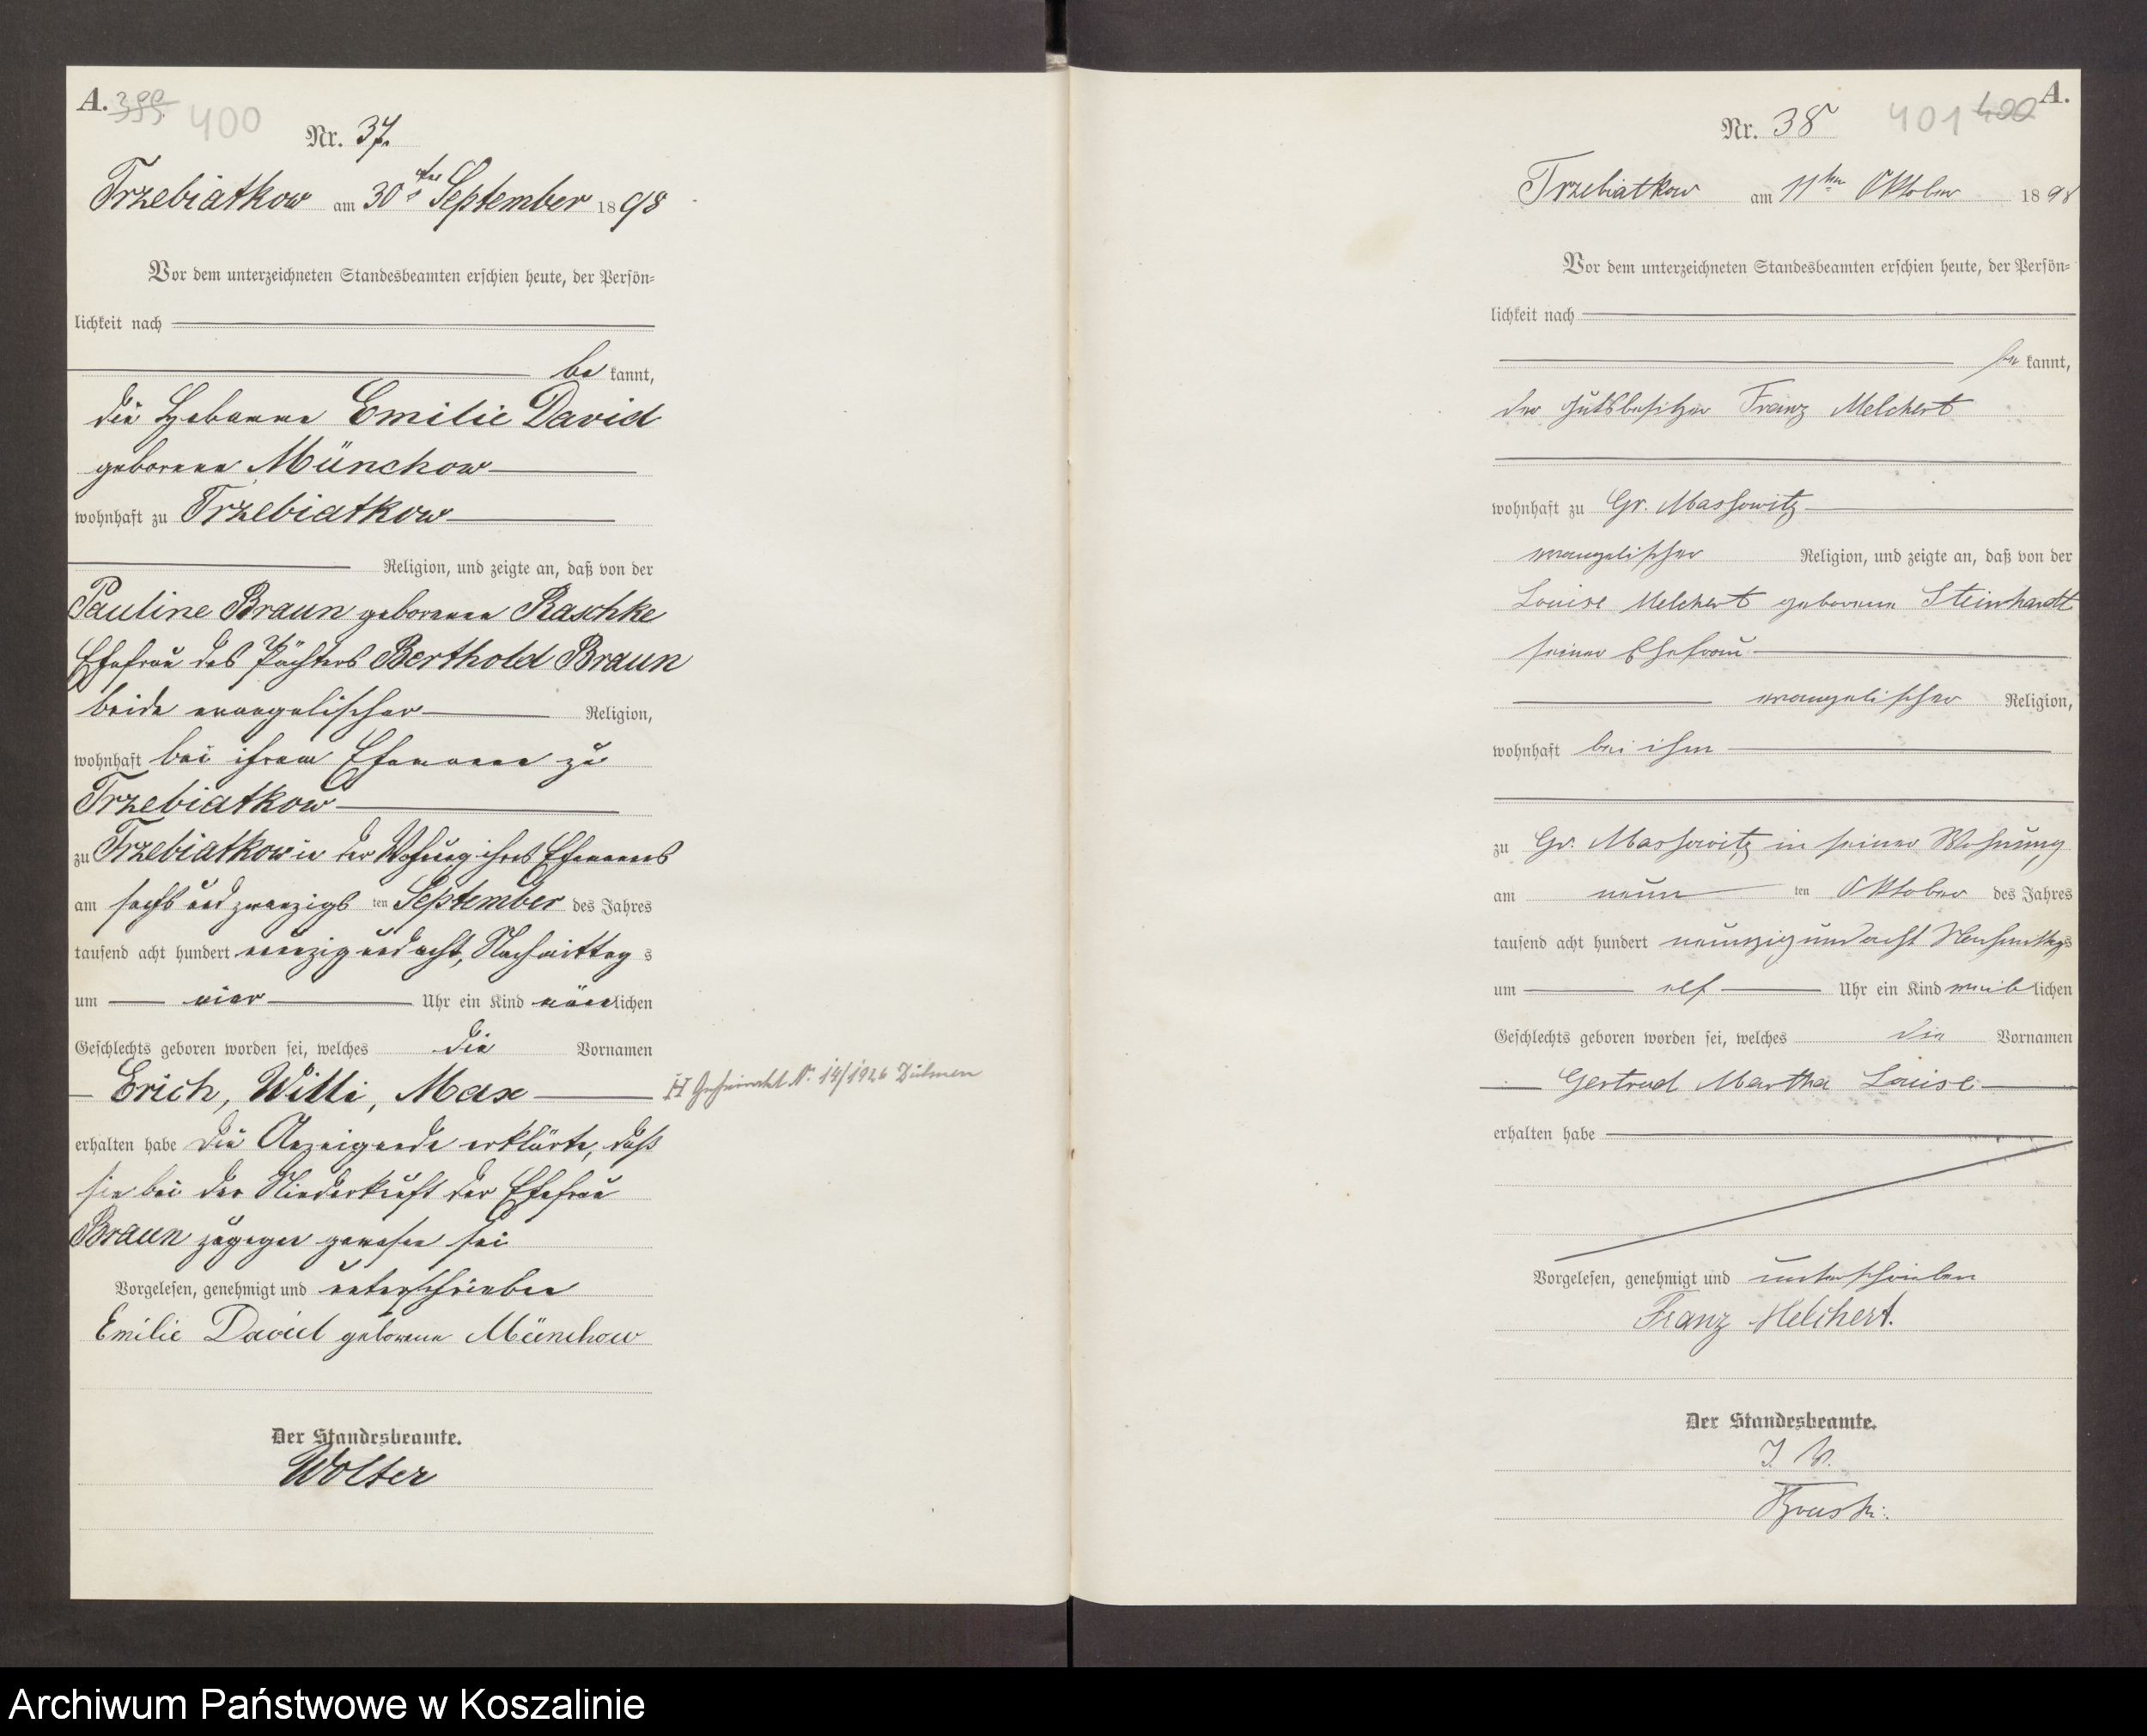 A. 399. 400
Nr. 37.
Trzebiatkow am 30ten September 1898
Vor dem unterzeichneten Standesbeamten erschien heute, der Persön-
lichkeit nach
be kannt,
die Hebamme Emilie David
geborene Münchow
wohnhaft zu Trzebiatkow
Religion, und zeigte an, daß von der
Pauline Braun geborenen Raschke
Ehefrau des Pächters Berthold Braun
beide evangelischer Religion,
wohnhaft bei ihrem Ehemanne zu
Trzebiatkow
zu Trzebiatkow in der Wohnung ihres Ehemannes
am sechs und zwanzigs ten September des Jahres
tausend acht hundert neunzig und acht, Nachmittag s
um vier Uhr ein Kind männlichen
Geschlechts geboren worden sei, welches die Vornamen
Erich, Willi, Max
H Geheiratet Nr. 14/1926 Dülmen
erhalten habe Die Anzeigende erklärte, daß
sie bei der Niederkunft der Ehefrau
Braun zugegen gewesen sei
Vorgelesen, genehmigt und unterschrieben
Emilie David geborene Münchow
Der Standesbeamte.
Wolter
A.
401 400
Nr. 38
Trzebiatkow am 11ten Oktober 1898
Vor dem unterzeichneten Standesbeamten erschien heute, der Persön-
lichkeit nach
be kannt,
der Gutsbesitzer Franz Melchert
wohnhaft zu Gr. Massowitz
evangelischer Religion, und zeigte an, daß von der
Louise Melchert geborenen Steinhardt
seiner Ehefrau
evangelischer Religion,
wohnhaft bei ihm
zu Gr. Massowitz in seiner Wohnung
am neun ten Oktober des Jahres
tausend acht hundert neunzig und acht Nachmittags
um elf Uhr ein Kind weiblichen
Geschlechts geboren worden sei, welches die Vornamen
Gertrud Martha Louise
erhalten habe
Vorgelesen, genehmigt und unterschrieben
Franz Melchert.
Der Standesbeamte.
I. V.
Archiwum Państwowe w Koszalinie